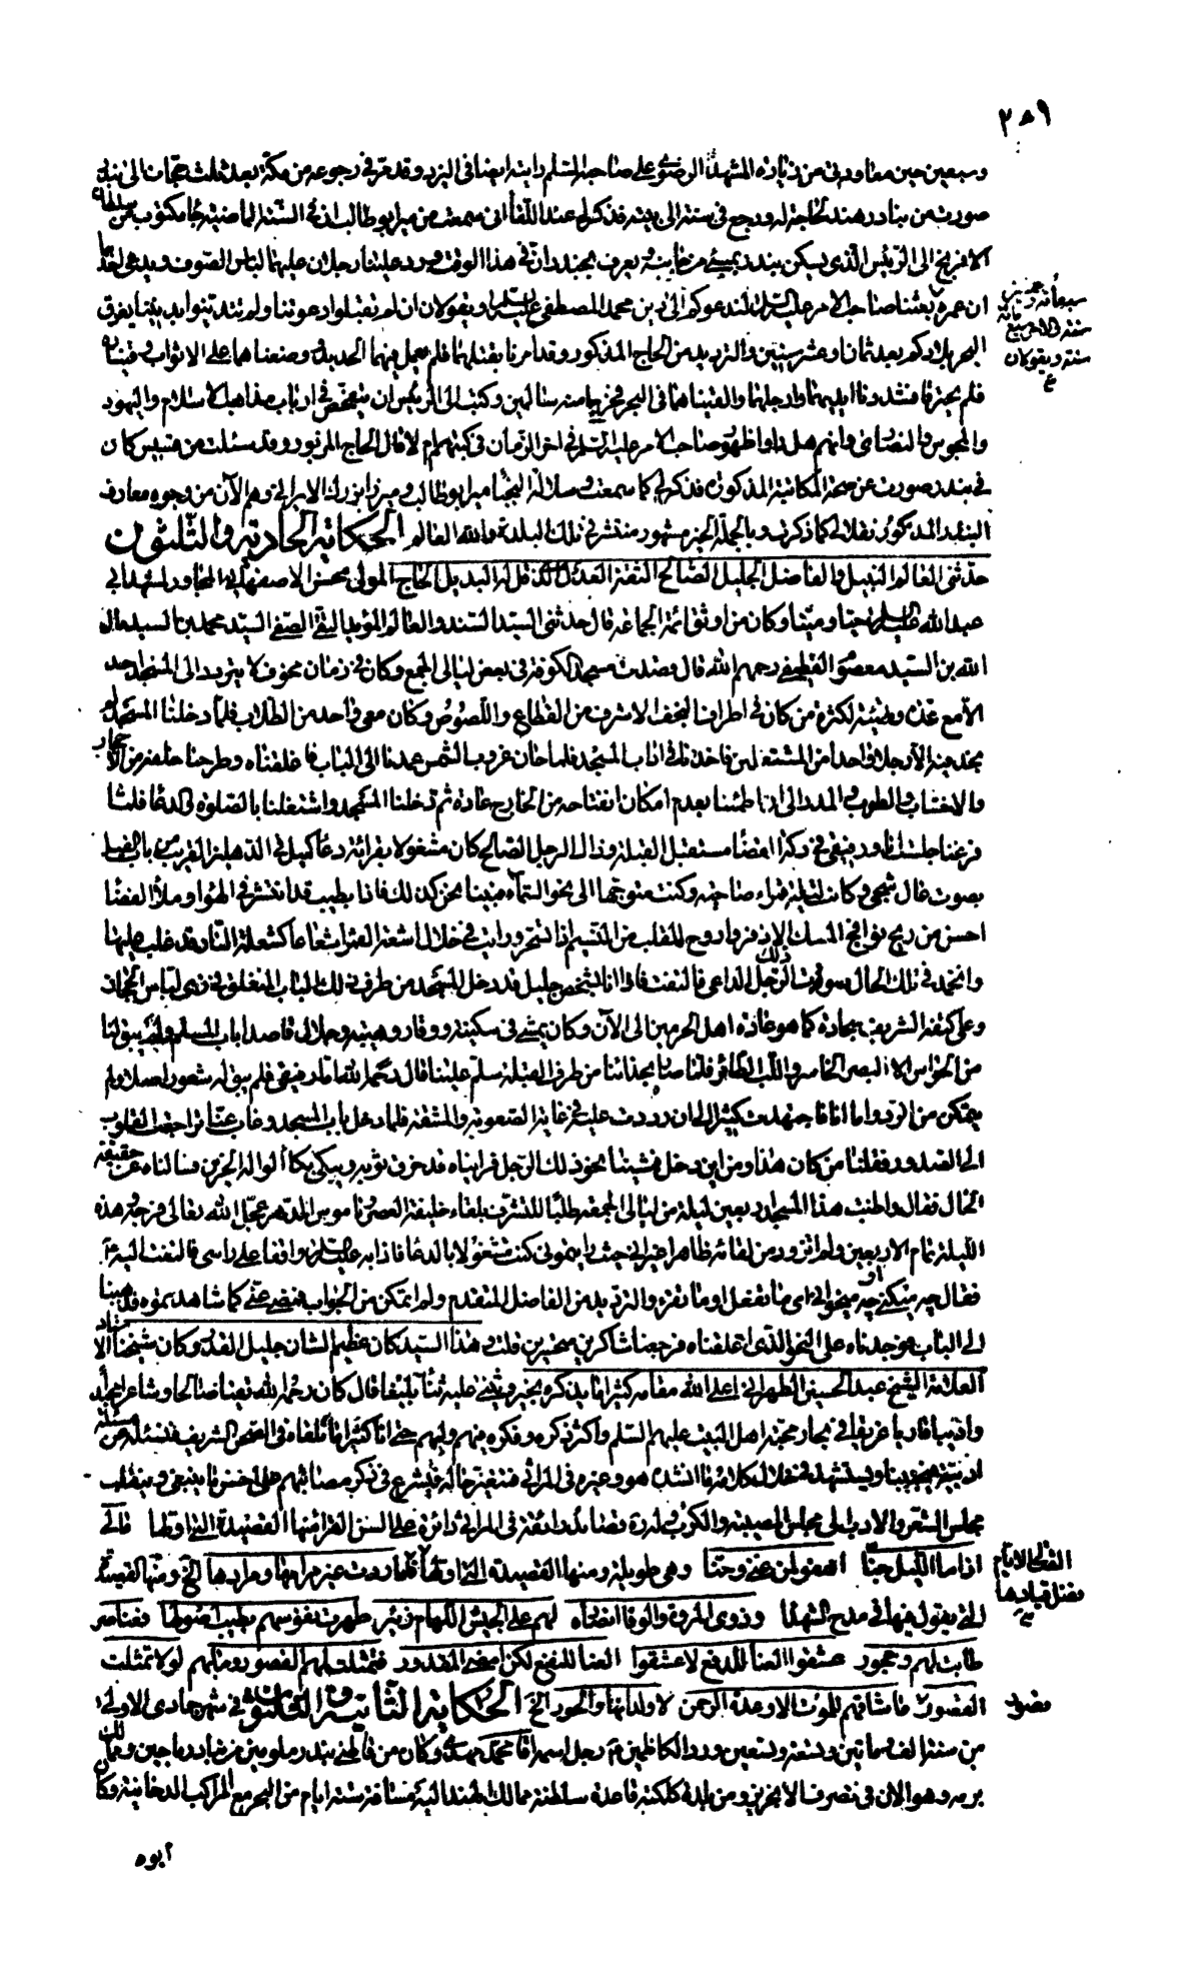 ٢٥٩
وسبعين حين معاودتي من زيارة المشهد الرضوي على صاحبه السلم رايته ايضا في اليزد وقد مر في رجوعه من مكة بعد ثلث حجات الى بندر
صورت من بنادر هند لحاجة له ورجع في سنة الى بيته فذكر لي عند اللقاء اني سمعت من مير ابو طالب ان في السنة الماضية جاء مكتوب من سلطان
الافرنج الى الرئيس الذي يسكن بندر بمبئي من جانبه ويعرف بجندر ان في هذا الوقت ورد علينا رجلان عليهما لباس الصوف ويدعي احدهما
ان عمره بعثنا صاحب الامر عليه السلم لندعوكم الى دين محمد المصطفى ويقولان ان لم تقبلوا دعوتنا ولم تتدينوا بديننا يغرق
سبعمأة وخمسين سنة والاخر سبعمأة سنة ويقولان
البحر بلادكم بعد ثمان او عشر سنين والترديد من الحاج المذكور وقد امرنا بقتلهما فلم يعمل فيهما الحديد ووضعناهما على الاثواب وقيناه
فلم يحترقا فشددنا ايديهما وارجلهما والقيناهما في البحر فخرجا منه سالمين وكتب الى الرئيس ان يتفحص في ارباب مذاهب الاسلام واليهود
والمجوس والنصارى وانهم هل راوا ظهور صاحب الامر عليه السلم في اخر الزمان في كتبهم ام لا قال الحاج المزبور وقد سئلت من قسيس كان
في بندر صورت عن صحة المكاتبة المذكورة فذكر لي كما سمعت وسلالة النجباء مير ابو طالب وميرزا بزرك الايراني وهم الآن من وجوه معارف
البندر المذكور نقلا لي كما ذكرت وبالجملة الخبر مشهور منتشر في تلك البلدة والله العالم الحكاية الحادية والثلثون
حدثني العالم النبيل والفاضل الجليل الصالح الثقة العدل الذي قل له البديل الحاج المولى محسن الاصفهاني المجاور لمشهد ابي
عبد الله عليه السلم حيا وميتا وكان من اوثق ائمة الجماعة قال حدثني السيد السند والعالم المؤيد التقي الصفي السيد محمد بن السيد مال
الله بن السيد معصوم القطيفي رحمهم الله قال قصدت مسجد الكوفة في بعض ليالي الجمع وكان في زمان مخوف لا يتردد الى المسجد احد
الا مع عدة وتهيئة لكثرة من كان في اطراف النجف الاشرف من القطاع واللصوص وكان معي واحد من الطلاب فلما دخلنا المسجد لم
نجد فيه الا رجلا واحدا من المشتغلين فاخذنا في اداب المسجد فلما حان غروب الشمس عمدنا الى الباب فاغلقناه وطرحنا خلفه من الاحجار
والاخشاب والطوب والمدر الى ان اطمئنا بعدم امكان انفتاحه من الخارج عادة ثم دخلنا المسجد واشتغلنا بالصلوة والدعا فلما
فرغنا جلست انا ورفيقي في دكة القضا مستقبل القبلة وذاك الرجل الصالح كان مشغولا بقرائة دعاء كميل في الدهليز القريب من باب الفيل
بصوت عال شجي وكانت ليلة قمراء صاحية وكنت متوجها الى نحو السماء فبينا نحن كذلك فاذا بطيب قد انتشر في الهواء وملأ الفضا
احسن من ريح نوافج المسك الاذفر واروح للقلب من النسيم اذا تسحر ورايت في خلال اشعة القمر اشعاعا كشعلة النار قد غلب عليها
وانخمد في تلك الحال صوت ذلك الرجل الداعي فالتفت فاذا انا بشخص جليل قد دخل المسجد من طرف ذلك الباب المنغلق في زي لباس الحجاز
وعلى كتفه الشريف سجادة كما هو عادة اهل الحرمين الى الآن وكان يمشي في سكينة ووقار وهيبة وجلال قاصدا باب المسلم ولم يبق لنا
من الحواس الا البصر الخاسر واللب الطائر فلما صار بحذائنا من طرف القبلة سلم علينا قال رحمه الله اما رفيقي فلم يبق له شعور اصلا ولم
يتمكن من الرد واما انا فاجتهدت كثيرا الى ان رددت عليه في غاية الصعوبة والمشقة فلما دخل باب المسجد وغاب عنا تراجعت القلوب
الى الصدور فقلنا من كان هذا ومن اين دخل فمشينا نحو ذلك الرجل فرايناه قد خرق ثوبه ويبكي بكاء الواله الحزين فسالناه عن حقيقة
الحال فقال واظبت هذا المسجد اربعين ليلة من ليالي الجمعة طلبا للتشرف بلقاء خليفة العصر وناموس الدهر عجل الله تعالى فرجه وهذه
الليلة تمام الاربعين ولم اتزود من لقائه ظاهرا غير اني حيث رايتموني كنت مشغولا بالدعا فاذا به عليه السلم واقفا على راسي فالتفت اليه
فقال چه ميكني او چه ميخواني اي ما تفعل او ما تقرء والترديد من الفاضل المتقدم ولم اتمكن من الجواب فمضى عني كما شاهدتموه فذهبنا
الى الباب فوجدناه على النحو الذي اغلقناه فرجعنا شاكرين متحيرين قلت وهذا السيد كان عظيم الشان جليل القدر وكان شيخنا الاستاد
العلامة الشيخ عبد الحسين الطهراني اعلى الله مقامه كثيرا ما يذكره بخير ويثني عليه ثناء بليغا قال كان رحمه الله تقيا صالحا وشاعرا مجيدا
واديبا قاريا غريقا في بحار محبة اهل البيت عليهم السلم واكثر ذكره وفكره فيهم ولهم حتى انا كثيرا ما نلقاه في الصحن الشريف فنسئله عن مسئلة
ادبية فيجيبنا ويستشهد في خلال كلامه بما انشده هو وغيره في المراثي فتتغير حاله فيشرع في ذكر مصائبهم على احسن ما ينبغي وينقلب
مجلس الشعر والادب الى مجلس المصيبة والكرب وله ره قصائد رائقة في المراثي دائرة على السن القراء منها القصيدة التي اولها مالي
اذا ما الليل جنا اهفو لمن غنى وحنا وهي طويلة ومنها القصيدة التي اولها فما ردت غير مرامها ومرادها الخ ومنها القصيدة
القت لي الايام فضل قيادها
التي يقول فيها في مدح الشهدا وذوي المروة والوفا انصاره لهم على الجيش اللهام زئير طهرت نفوسهم بطيب اصولها فعناصر
طابت لهم وحجور عشقوا العنا للدفع لا عشقوا العنا للنفع لكن امضي المقدور فتمثلت لهم القصور وما بهم لولا تمثلت
القصور قصور ما شاقهم للموت الا وعدة الرحمن لا ولدانها والحور الخ الحكاية الثانية والثلثون في شهر جمادى الاولى
من سنة الف ومأتين وتسعة وتسعين ورد الكاظمين ره رجل اسمه اقا محمد مهدي وكان من قاطني بندر ملومين من بنادر ماجين وممالك
برمه وهو الان في تصرف الانجريز ومن بلدة كلكته قاعدة سلطنة ممالك الهند اليه مسافة ستة ايام من البحر مع المراكب الدخانية وكان
ابوه